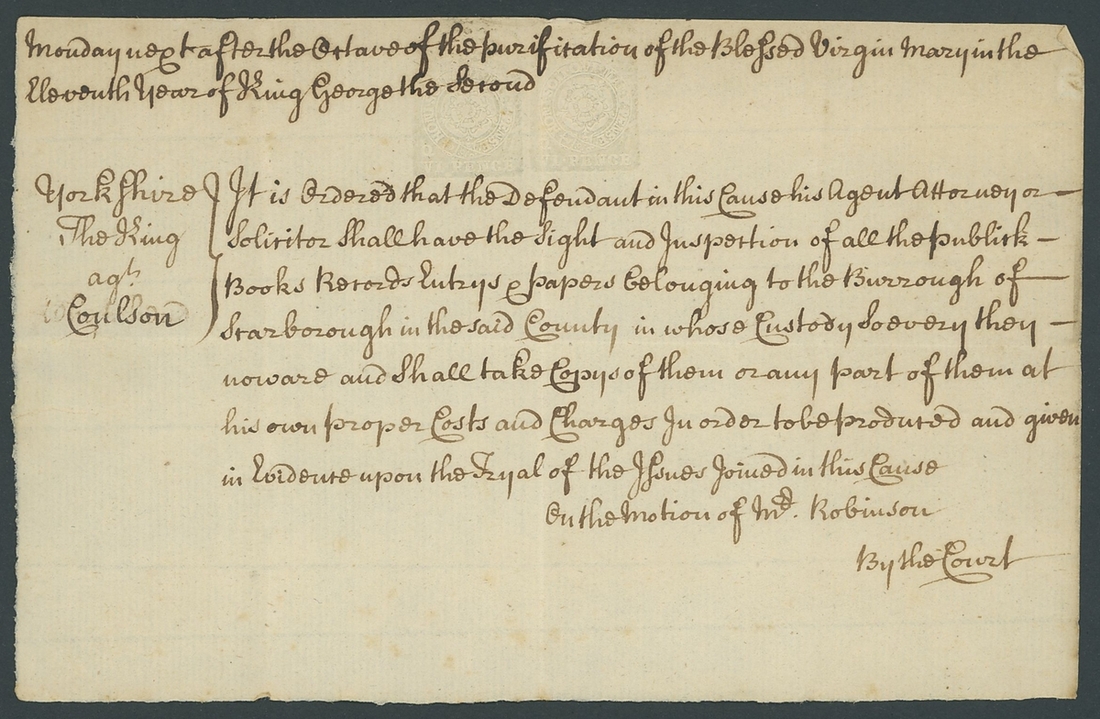 Monday next after the Octave of the purification of the Blessed Virgin Mary in the
Eleventh Year of King George the Second
VI PENCE
VI PENCE
Yorkshire
The King
agt
Coulson
It is Ordered that the Defendant in this Cause his Agent Attorney or
Solicitor Shall have the Sight and Inspection of all the publick
Books Records Entrys & papers belonging to the Burrough of
Scarborough in the said County in whose Custody Soevery they
noware and Shall take Copys of them or any part of them at
his own proper Costs and Charges In order to be produced and given
in Evidence upon the Tryal of the Issues Joined in this Cause
On the Motion of Mr. Robinson
By the Court